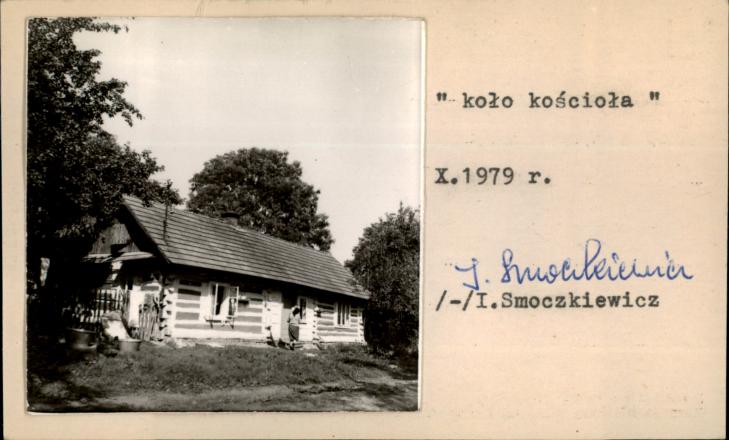 " koło kościoła "
X.1979 r.
J. Smoczkiewicz
/-/I.Smoczkiewicz